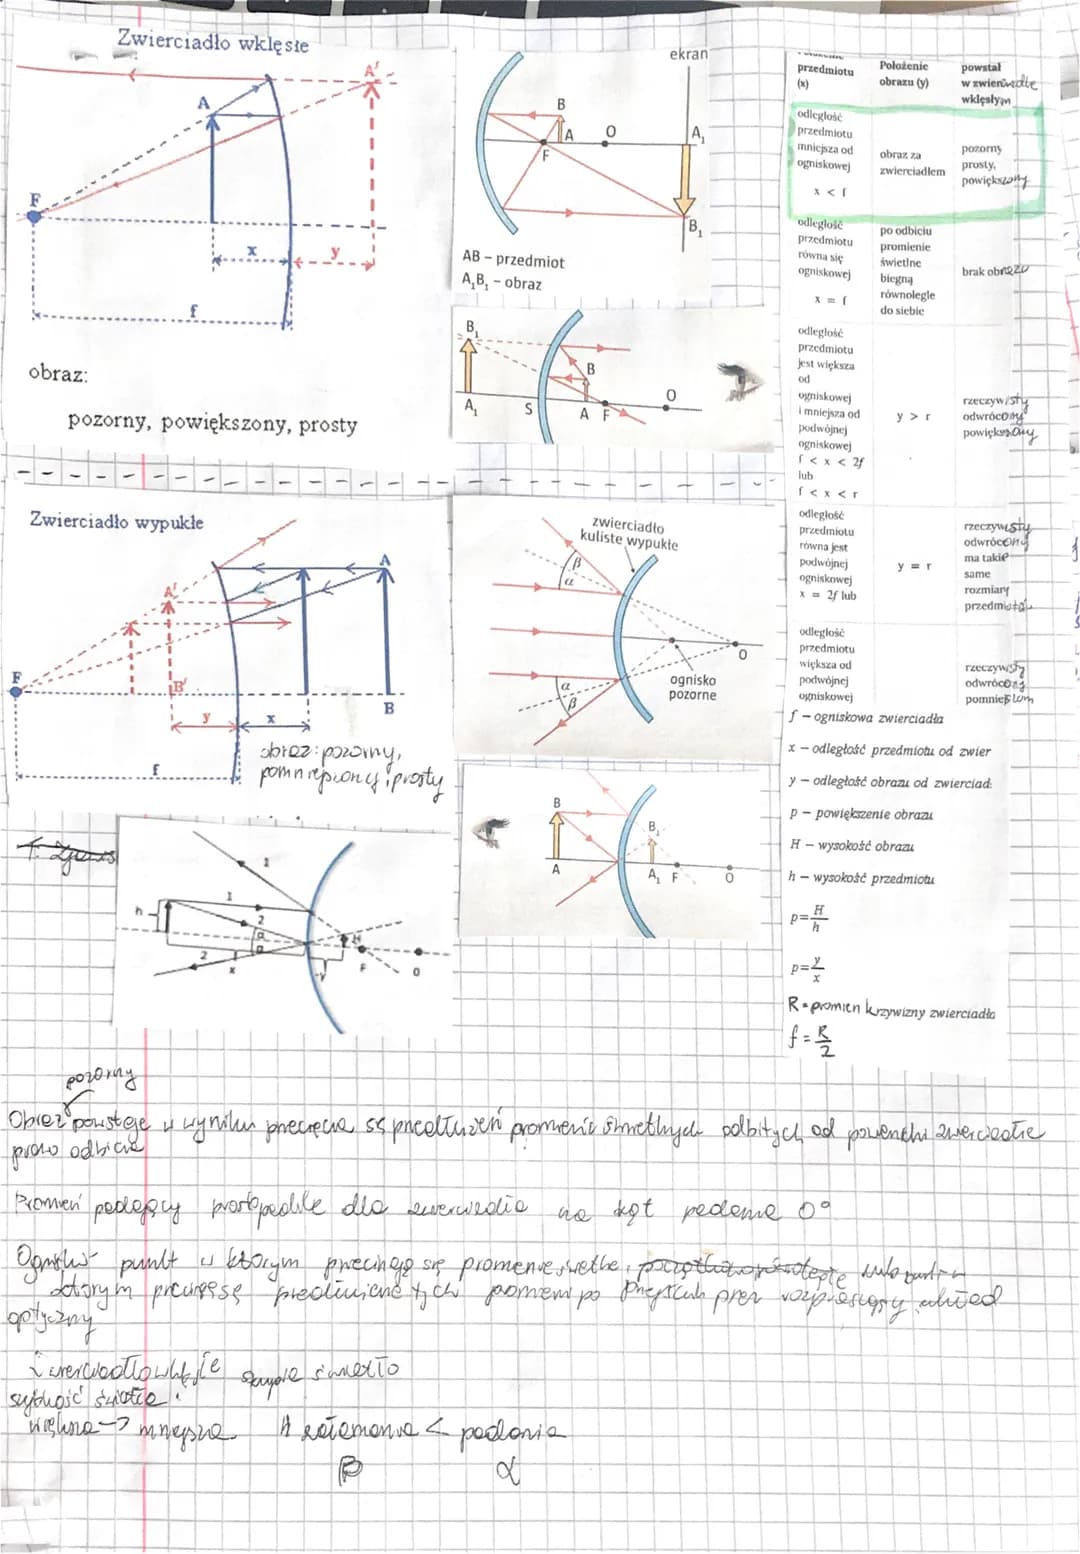 Zwierciadło wklęsłe
A'
A
F
x
y
f
obraz:
pozorny, powiększony, prosty
ekran
B
A
O
A₁
F
B₁
AB – przedmiot
A₁B₁ – obraz
B₁
B
O
A₁
S
A
F
Zwierciadło wypukłe
A
A'
F
B'
B
y
x
f
obraz: pozorny,
pomniejszony, prosty
zwierciadło
kuliste wypukłe
β
α
O
ognisko
pozorne
α
β
B
B₁
A
A₁
F
O
1
h
1
2
α
α
H
2
x
y
F
O
przedmiotu
(x)
Położenie
obrazu (y)
powstał
w zwierciadle
wklęsłym
odległość
przedmiotu
mniejsza od
ogniskowej
x < f
obraz za
zwierciadłem
pozorny
prosty,
powiększony
odległość
przedmiotu
równa się
ogniskowej
x = f
po odbiciu
promienie
świetlne
biegną
równolegle
do siebie
brak obrazu
odległość
przedmiotu
jest większa
od
ogniskowej
i mniejsza od
podwójnej
ogniskowej
f < x < 2f
lub
f < x < r
y > r
rzeczywisty
odwrócony
powiększony
odległość
przedmiotu
równa jest
podwójnej
ogniskowej
x = 2f lub
y = r
rzeczywisty
odwrócony
ma takie
same
rozmiary
przedmiotu
odległość
przedmiotu
większa od
podwójnej
ogniskowej
rzeczywisty
odwrócony
f – ogniskowa zwierciadła
x – odległość przedmiotu od zwier
y – odległość obrazu od zwierciad
p – powiększenie obrazu
H – wysokość obrazu
h – wysokość przedmiotu
p=H/h
p=y/x
R - promień krzywizny zwierciadła
f = R/2
pozorny
Obraz powstaje w wyniku przecięcia są przedłużeń promieni świetlnych odbitych od powierzchni zwierciadła
prawo odbicia
Promień padający prostopadle dla zwierciadła ma kąt padania 0°
Ognisko punkt w którym przecinają się promienie świetlne,
którym przecinają się przedłużenie tych promieni po przejściu przez rozpraszający układ
optyczny
Zwierciadło wklęsłe skupia światło
większa → mniejsza
załamania < padania
β
α